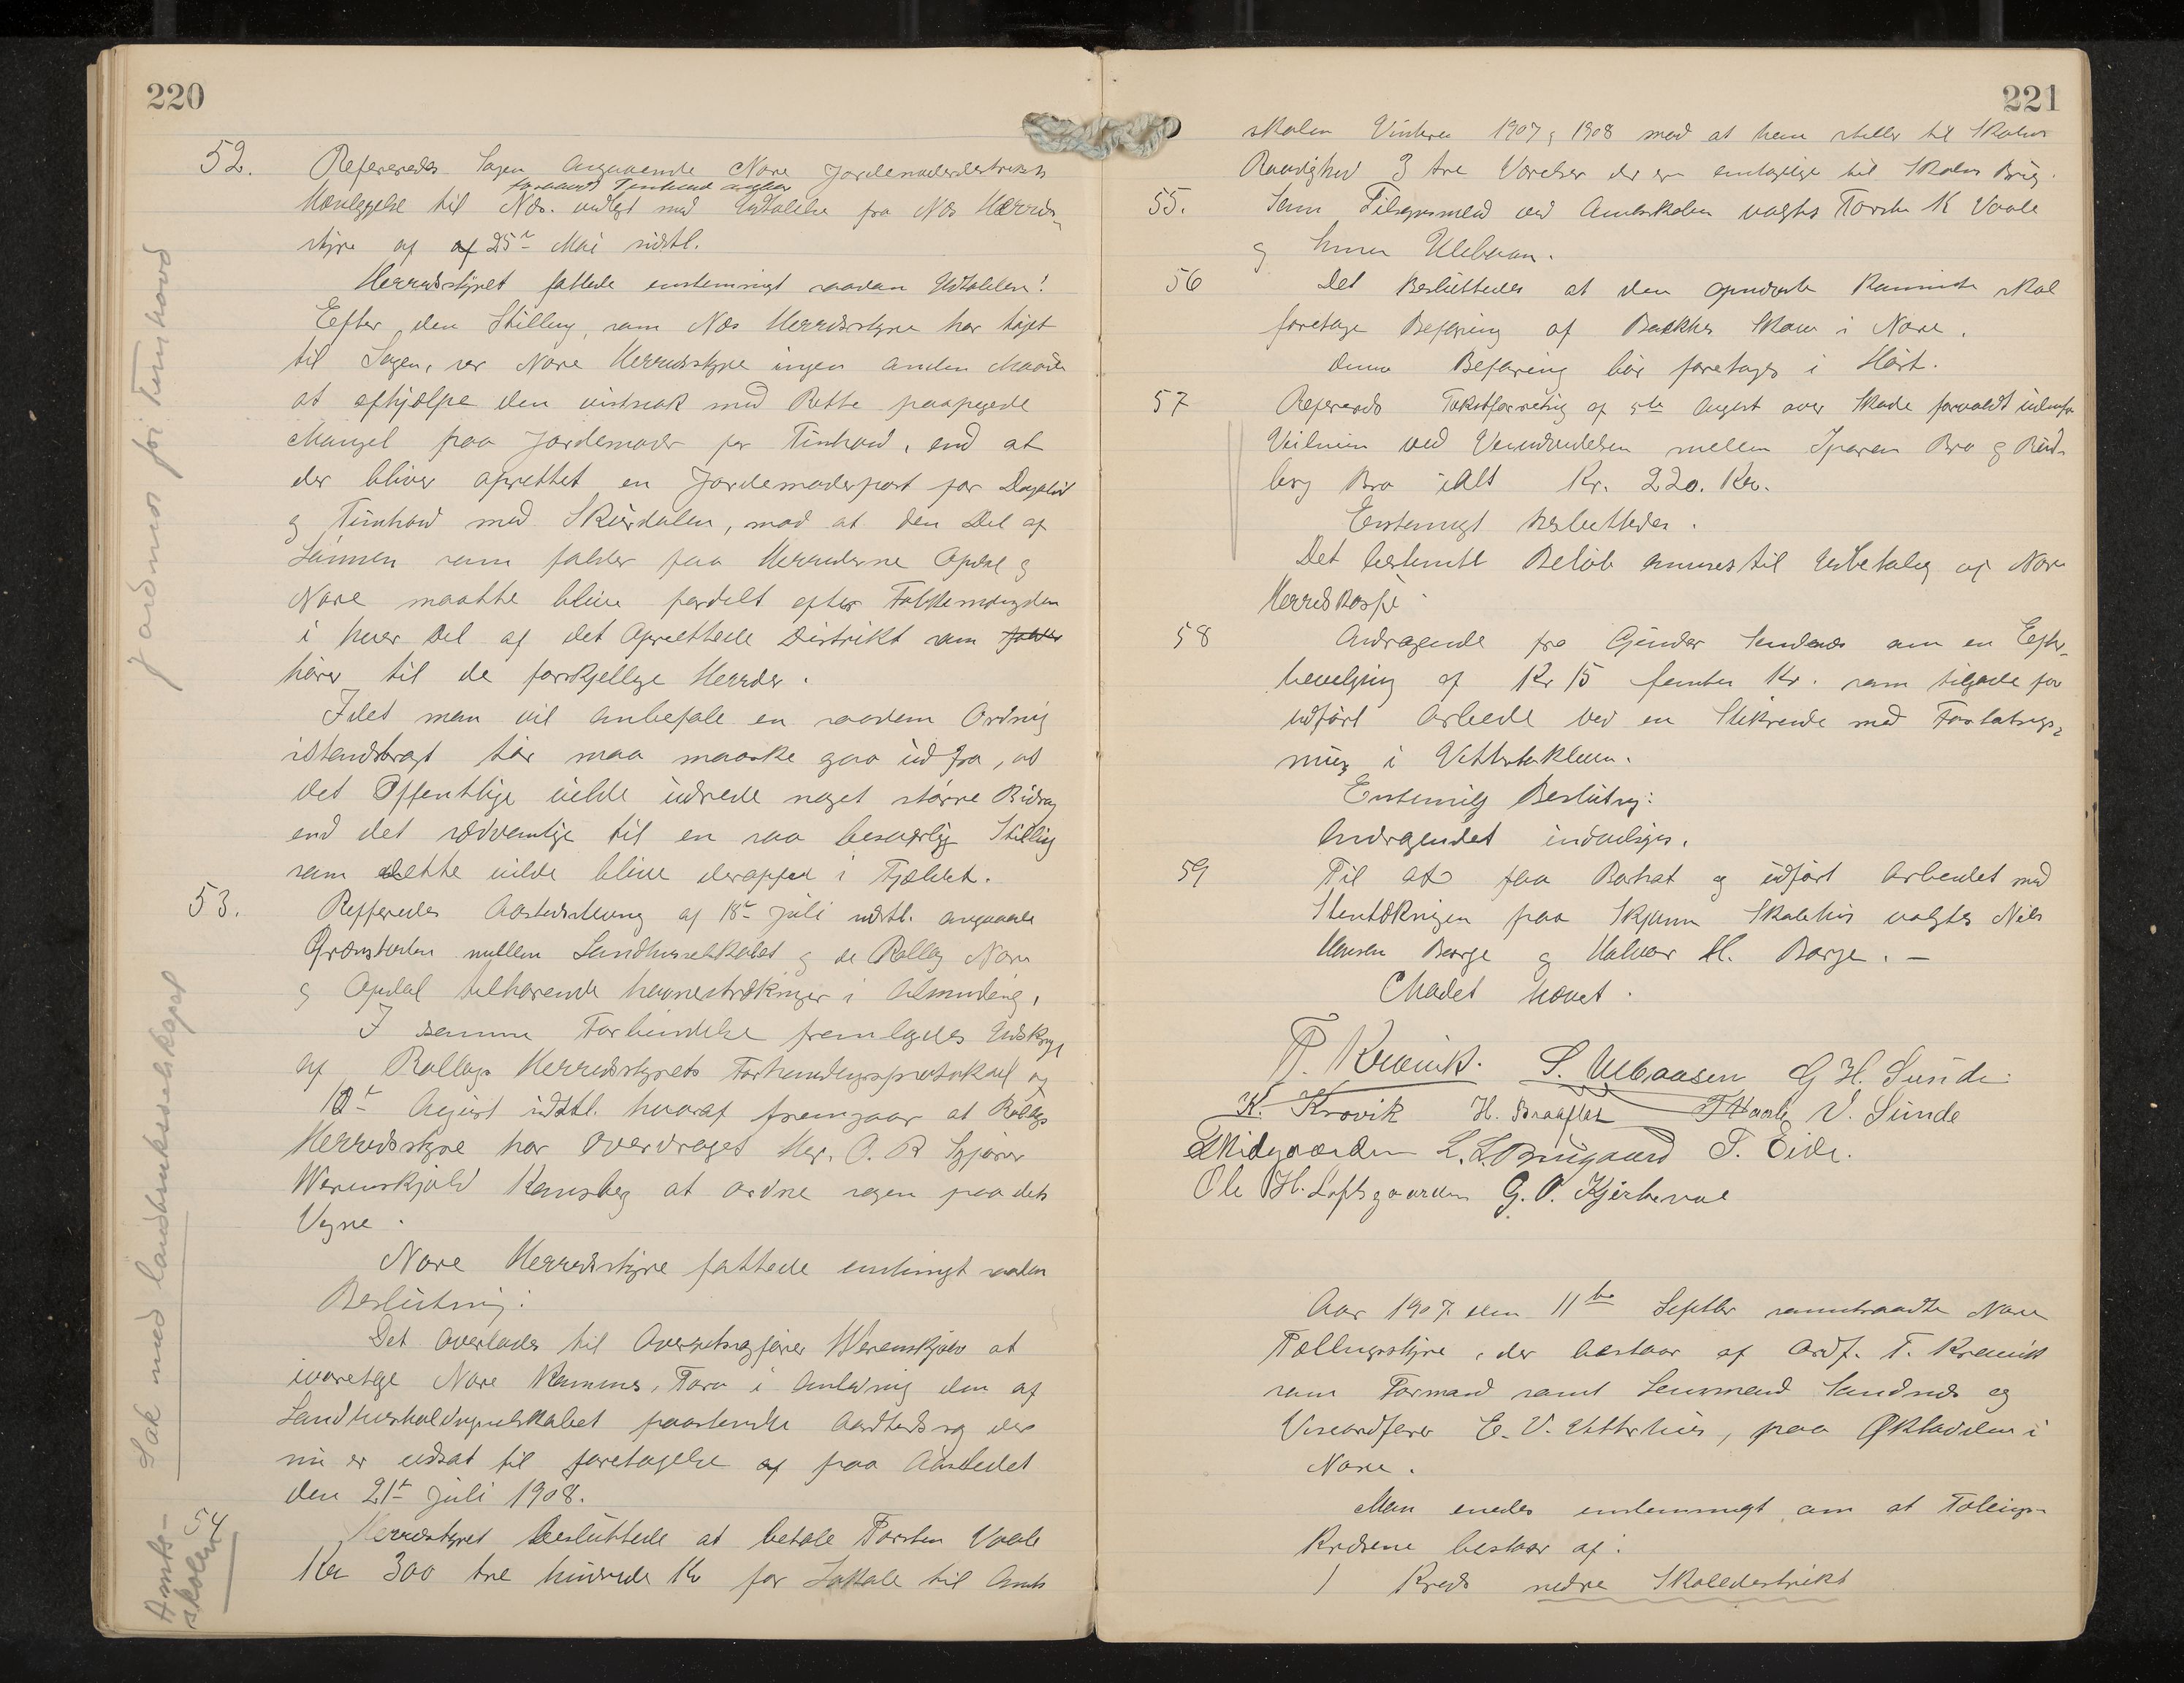 220
52. Refereredes Sagen angaaende Nore Jordemoderdistrikts
forsaavidt Tunhovd angaar
Henleggelse til Næs. vedlagt med Udtalelse fra Næs Herreds-
styre af 25de Mai sidstl.
Herredsstyret fattede enstemmigt saadan Udtalelse:
Efter den Stilling, som Næs Herredsstyre har tåget
til Sagen, ser Nore Herredsstyre ingen anden Maade
at afhjælpe den vistnok med Rette paapegede
Mangel paa Jordemoder for Tunhovd, end at
der bliver oprettet en Jordemoderpost for Dagalid
og Tunhovd med Skurdalen, mod at den Del af
Lønnen som falder paa Herrederne Opdal og
Nore maatte blive fordelt efter Folkemængden
i hver Del af det Oprettede Distrikt som falder
hører til de forskjellige Herreder.
Idet man vil anbefale en saadan Ordning
istandbragt tør man maaske gaa ud fra, at
det Offentlige vilde udrede noget større Bidrag
end det sædvanlige til en saa besværlig Stilling
som dette vilde blive deroppe i Fjeldet.
53. Refferedes Aastedsstevning af 18de Juli sidstl. angaaende
Grænsturten mellem Landhusselskabet og de Rollag Nore
og Opdal tilhørende havnestrækninger i Almuding,
I samme Forbindelse fremlagdes Udskrift
af Rollags Herredsstyrets Forhandlingsprotokol af
10de August sidstl. hvoraf fremgaar at Rollags
Herredsstyre har overdraget Hr. O. R Sagfører
Werenskjold Kongsberg at ordne sagen paa dets
Vegne.
Nore Herredsstyre fattede enstemigt saadan
Beslutning:
Det overlades til Overretssagfører Werenskjold at
ivaretage Nore Kommunes Tarv i Anledning den af
Landhusholdningsselskabet paastevnte Aastedssag der
nu er udsat til foretagelse paa Aastedet
den 21de Juli 1908.
54 Herredsstyret besluttede at betale Torsten Vaale
Kr 300 tre hundrede Kr for Lokale til Amts
Jordmor for Tunhovd
Sak med landhusselskapet
Amts-
skolen
221
skolen Vinteren 1907 og 1908 mod at han stiller til Skolens
Raadighed 3 tre Værelser der er antagelige til Skolens Brug.
55. Som Tilsynsmænd ved Amtskolen valgtes Torsten K Vaale
og Simen Ulebaasen.
56 Det Besluttedes at den opnævnte Kommite skal
foretage Befaring af Bakkes Skov i Nore.
denne Befaring bør foretages i Høst.
57 Refereredes Takstforretning af 5te August over Skade forvoldt udenfor
Veilinien ved Veiudvidelsen mellem Sporan Bro og Rud-
berg Bro ialt Kr. 220. Kr.
Enstemigt besluttedes.
Det bestemte Beløb anvises til Udbetaling af Nore
Herredskasse
58 Andragende fra Gunder Sendenes om en Efter-
bevilgning af Kr 15 femten Kr. som tilgode for
udført Arbeide ved en Stikrende med Forstøtnings-
mur i Vetterhuskleven.
Enstemig Beslutning:
Andragendet indvilges.
59 Til at faa Bortsat og udført Arbeidet med
Stentækningen paa Skjønne Skolehus valgtes Nils
Hansen Borge og Halvor H. Borge. –
Mødet hævet.
T. Kravik. S. Ulbaasen G H. Sunde.
K. Kravik H. Braaflat T Vaale V. Sunde
E Skidgaarden L. L. Brugaard T. Eide.
Ole H. Loftsgaarden G. O. Kjerkevoe
Aar 1907 den 11te Septbr sammentraadte Nore
Tællingsstyre, der bestaar af Ordf. T. Kravik
som Formand samt Lensmand Sandnes og
Viseordfører E. V. Vetterhus, paa Øktedalen i
Nore.
Man enedes enstemmigt om at Tællings-
Kredsene bestaar af:
1 Kreds nedre Skoledestrikt